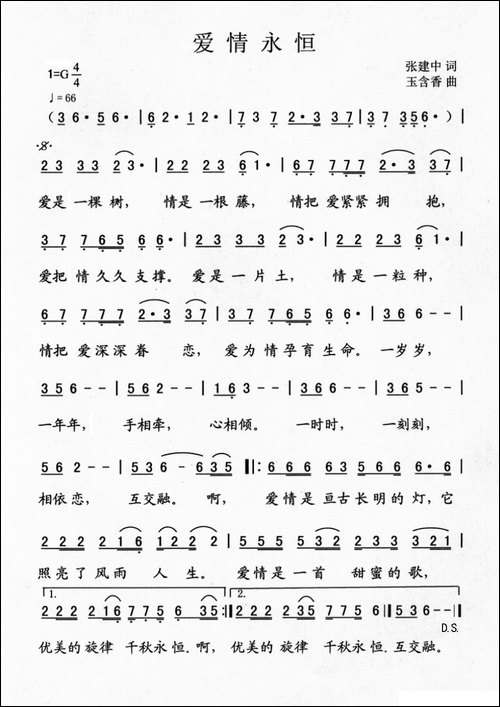 爱情永恒
1=G 4/4
张建中 词
♩=66
玉含香 曲
(3 6· 5 6·|6 2· 1 2·|7 3 7 2·3 3 7|3 7 3 5 6·)|
2 3 3 3 2 3·|2 2 2 2 3 6 1·|6 7 7 7 7 2·3 3 7|
爱是一棵树, 情是一根藤, 情把爱紧紧拥 抱,
3 7 7 6 5 6 6·|2 3 2 3 3 2 3·|2 2 2 2 3 6 1·|
爱把情久久支撑。爱是一片土, 情是一粒种,
6 7 7 7 7 2·3 3 7|3 7 7 6 5 6 6·|3 5 6 - -|
情把爱深深眷 恋, 爱为情孕育生命。一岁岁,
3 5 6 - -|5 6 2 - -|1 6 3 - -|3 5 6 - -|3 6 5 - -|
一年年, 手相牵, 心相倾。 一时时, 一刻刻,
5 6 2 - -|5 3 6 - 6 3 5||:6 6 6 6 3 5 6 6 6 6·6|
相依恋, 互交融。啊, 爱情是亘古长明的灯,它
2 2 2 2 2 1 6·|5 5 5 5 3 2 2 3 3 2 1|
照亮了风雨 人 生。 爱情是一首 甜蜜的歌,
1.
2.
2 2 2 2 1 6 7 7 5 6· 3 5:|2 2 2 2 1 6 3 5 5 6·|5 3 6 - -||
D.S.
优美的旋律 千秋永恒.啊, 优美的旋律 千秋永恒.互交融。